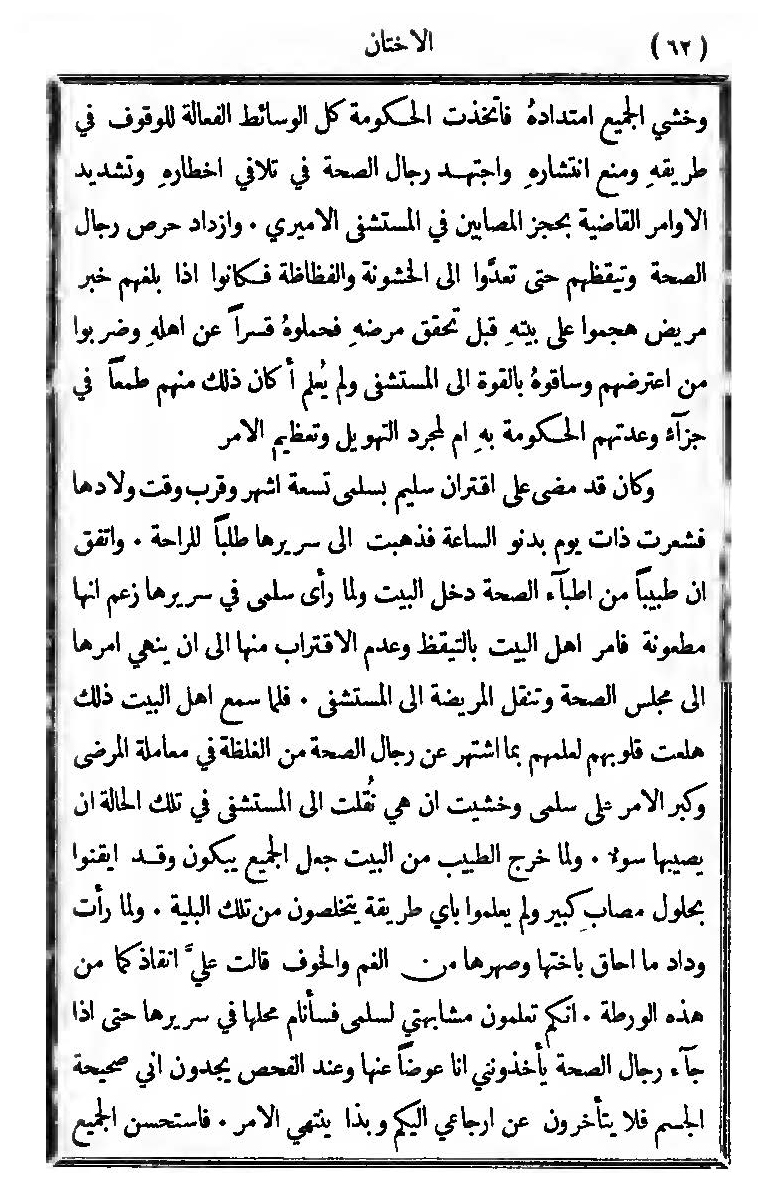 (٦٢) الاختان
وخشي الجميع امتدادهُ فاتخذت الحكومة كل الوسائط الفعالة للوقوف في
طريقهِ ومنع انتشارهِ واجتهد رجال الصحة في تلافي اخطارهِ وتشديد
الاوامر القاضية بحجز المصابين في المستشفى الاميري . وازداد حرص رجال
الصحة وتيقظهم حتى تعدَّوا الى الخشونة والفظاظة فكانوا اذا بلغهم خبر
مريض هجموا على بيتهِ قبل تحقق مرضهِ فحملوهُ قسراً عن اهلهِ وضربوا
من اعترضهم وساقوهُ بالقوة الى المستشفى ولم يُعلم أكان ذلك منهم طمعاً في
جزآءٍ وعدتهم الحكومة بهِ ام لمجرد التهويل وتعظيم الامر
وكان قد مضى على اقتران سليم بسلمى تسعة اشهر وقرب وقت ولادها
فشعرت ذات يوم بدنو الساعة فذهبت الى سريرها طلباً للراحة . واتفق
ان طبيباً من اطبآء الصحة دخل البيت ولما رأى سلمى في سريرها زعم انها
مطعونة فامر اهل البيت بالتيقظ وعدم الاقتراب منها الى ان ينهي امرها
الى مجلس الصحة وتنقل المريضة الى المستشفى . فلما سمع اهل البيت ذلك
هلعت قلوبهم لعلمهم بما اشتهر عن رجال الصحة من الغلظة في معاملة المرضى
وكبر الامر على سلمى وخشيت ان هي نُقلت الى المستشفى في تلك الحالة ان
يصيبها سوء . ولما خرج الطبيب من البيت جعل الجميع يبكون وقد ايقنوا
بحلول مصابٍ كبير ولم يعلموا باي طريقة يتخلصون من تلك البلية . ولما رأت
وداد ما احاق باختها وصهرها من الغم والخوف قالت عليَّ انقاذكما من
هذه الورطة . انكم تعلمون مشابهتي لسلمى فسأنام محلها في سريرها حتى اذا
جآء رجال الصحة يأخذونني انا عوضاً عنها وعند الفحص يجدون اني صحيحة
الجسم فلا يتأخرون عن ارجاعي اليكم وبذا ينتهي الامر . فاستحسن الجميع